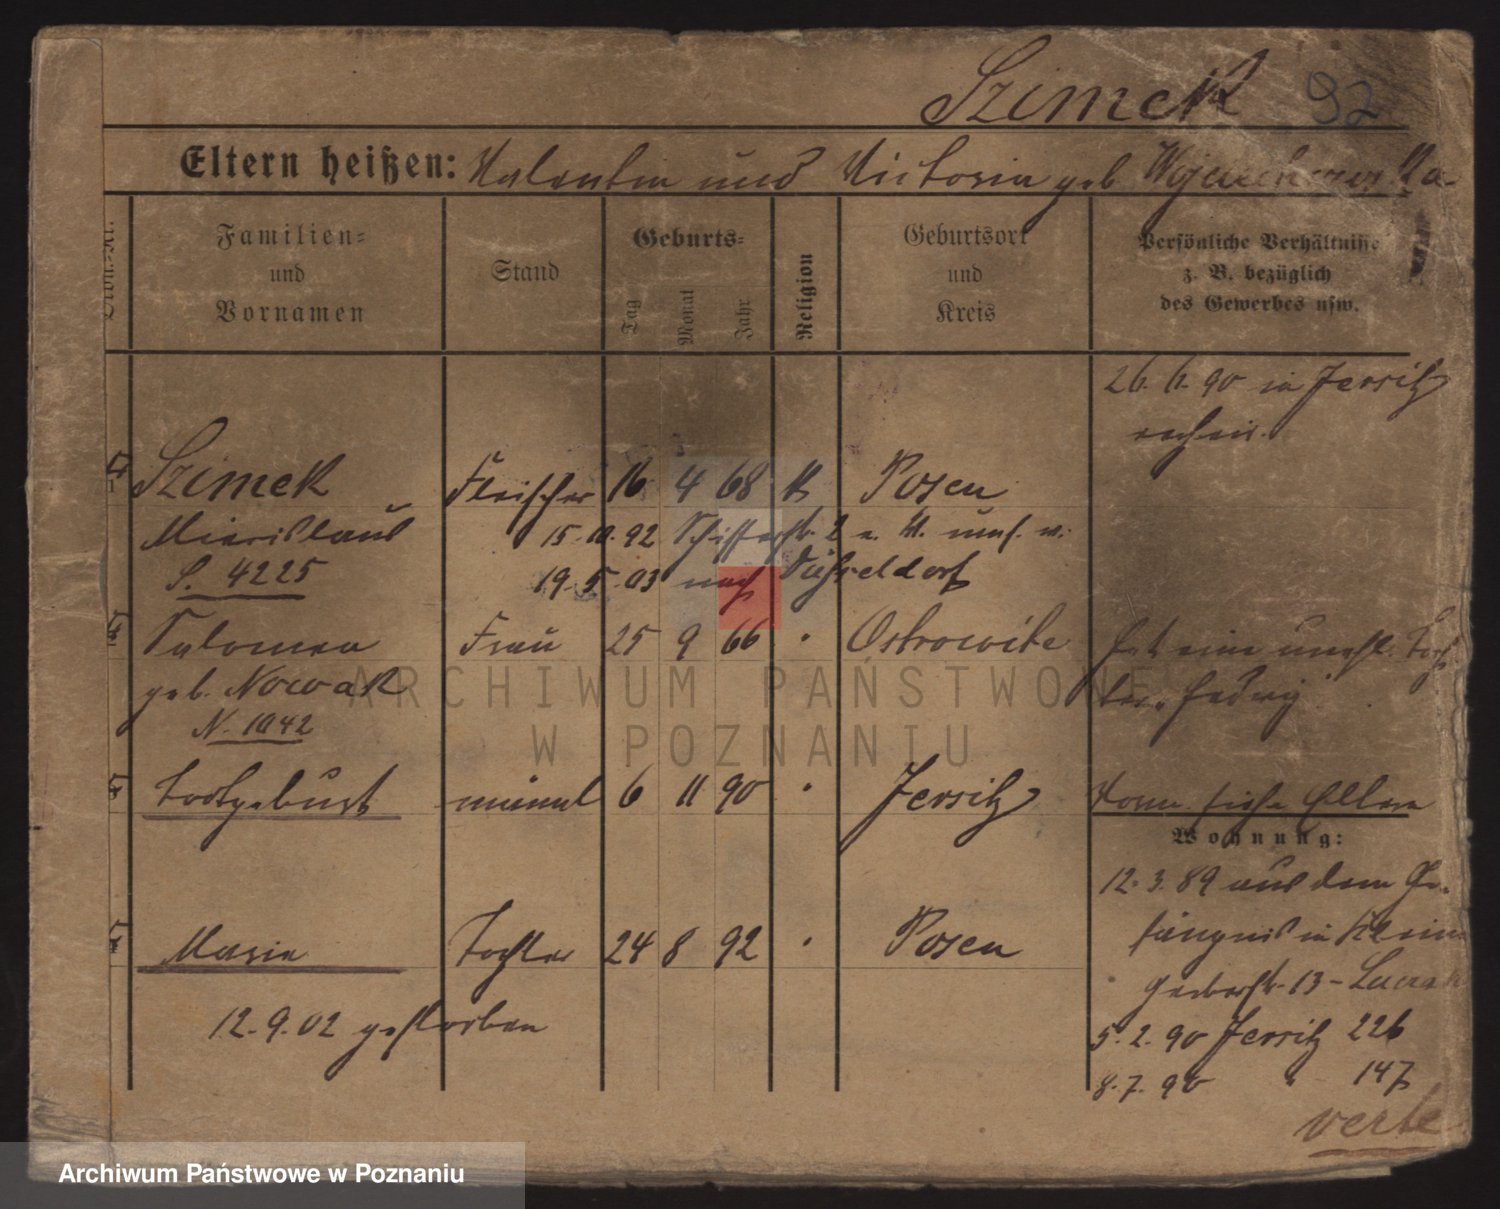 Szimek 92
Eltern heißen: Valentin und Victoria geb
Familien- und Vornamen
Stand
Geburts-
Tag Monat Jahr
Religion
Geburtsort und Kreis
Persönliche Verhältnisse
z. B. bezüglich
des Gewerbes usw.
26. 6. 90 in Jersitz
Szimek Fleischer 16 4 68 K Posen
Miecislaus 15. 10. 92 2
S. 4225 19. 5. 03 nach Düsseldorf
Salomea Frau 25 9 66 " Ostrowite hat eine unehl. Toch-
geb. Nowak ter Hedwig
N. 1042
Todtgeburt männl 6 11 90 " Jersitz siehe Eltern
Wohnung:
12. 3. 89 aus dem Ge-
Maria Tochter 24 8 92 " Posen fängnis in
13 -
12. 9. 02 gestorben
5. 2. 90 Jersitz 226
8. 7. 90 " 147
verte
ARCHIWUM PAŃSTWOWE
W POZNANIU
Archiwum Państwowe w Poznaniu